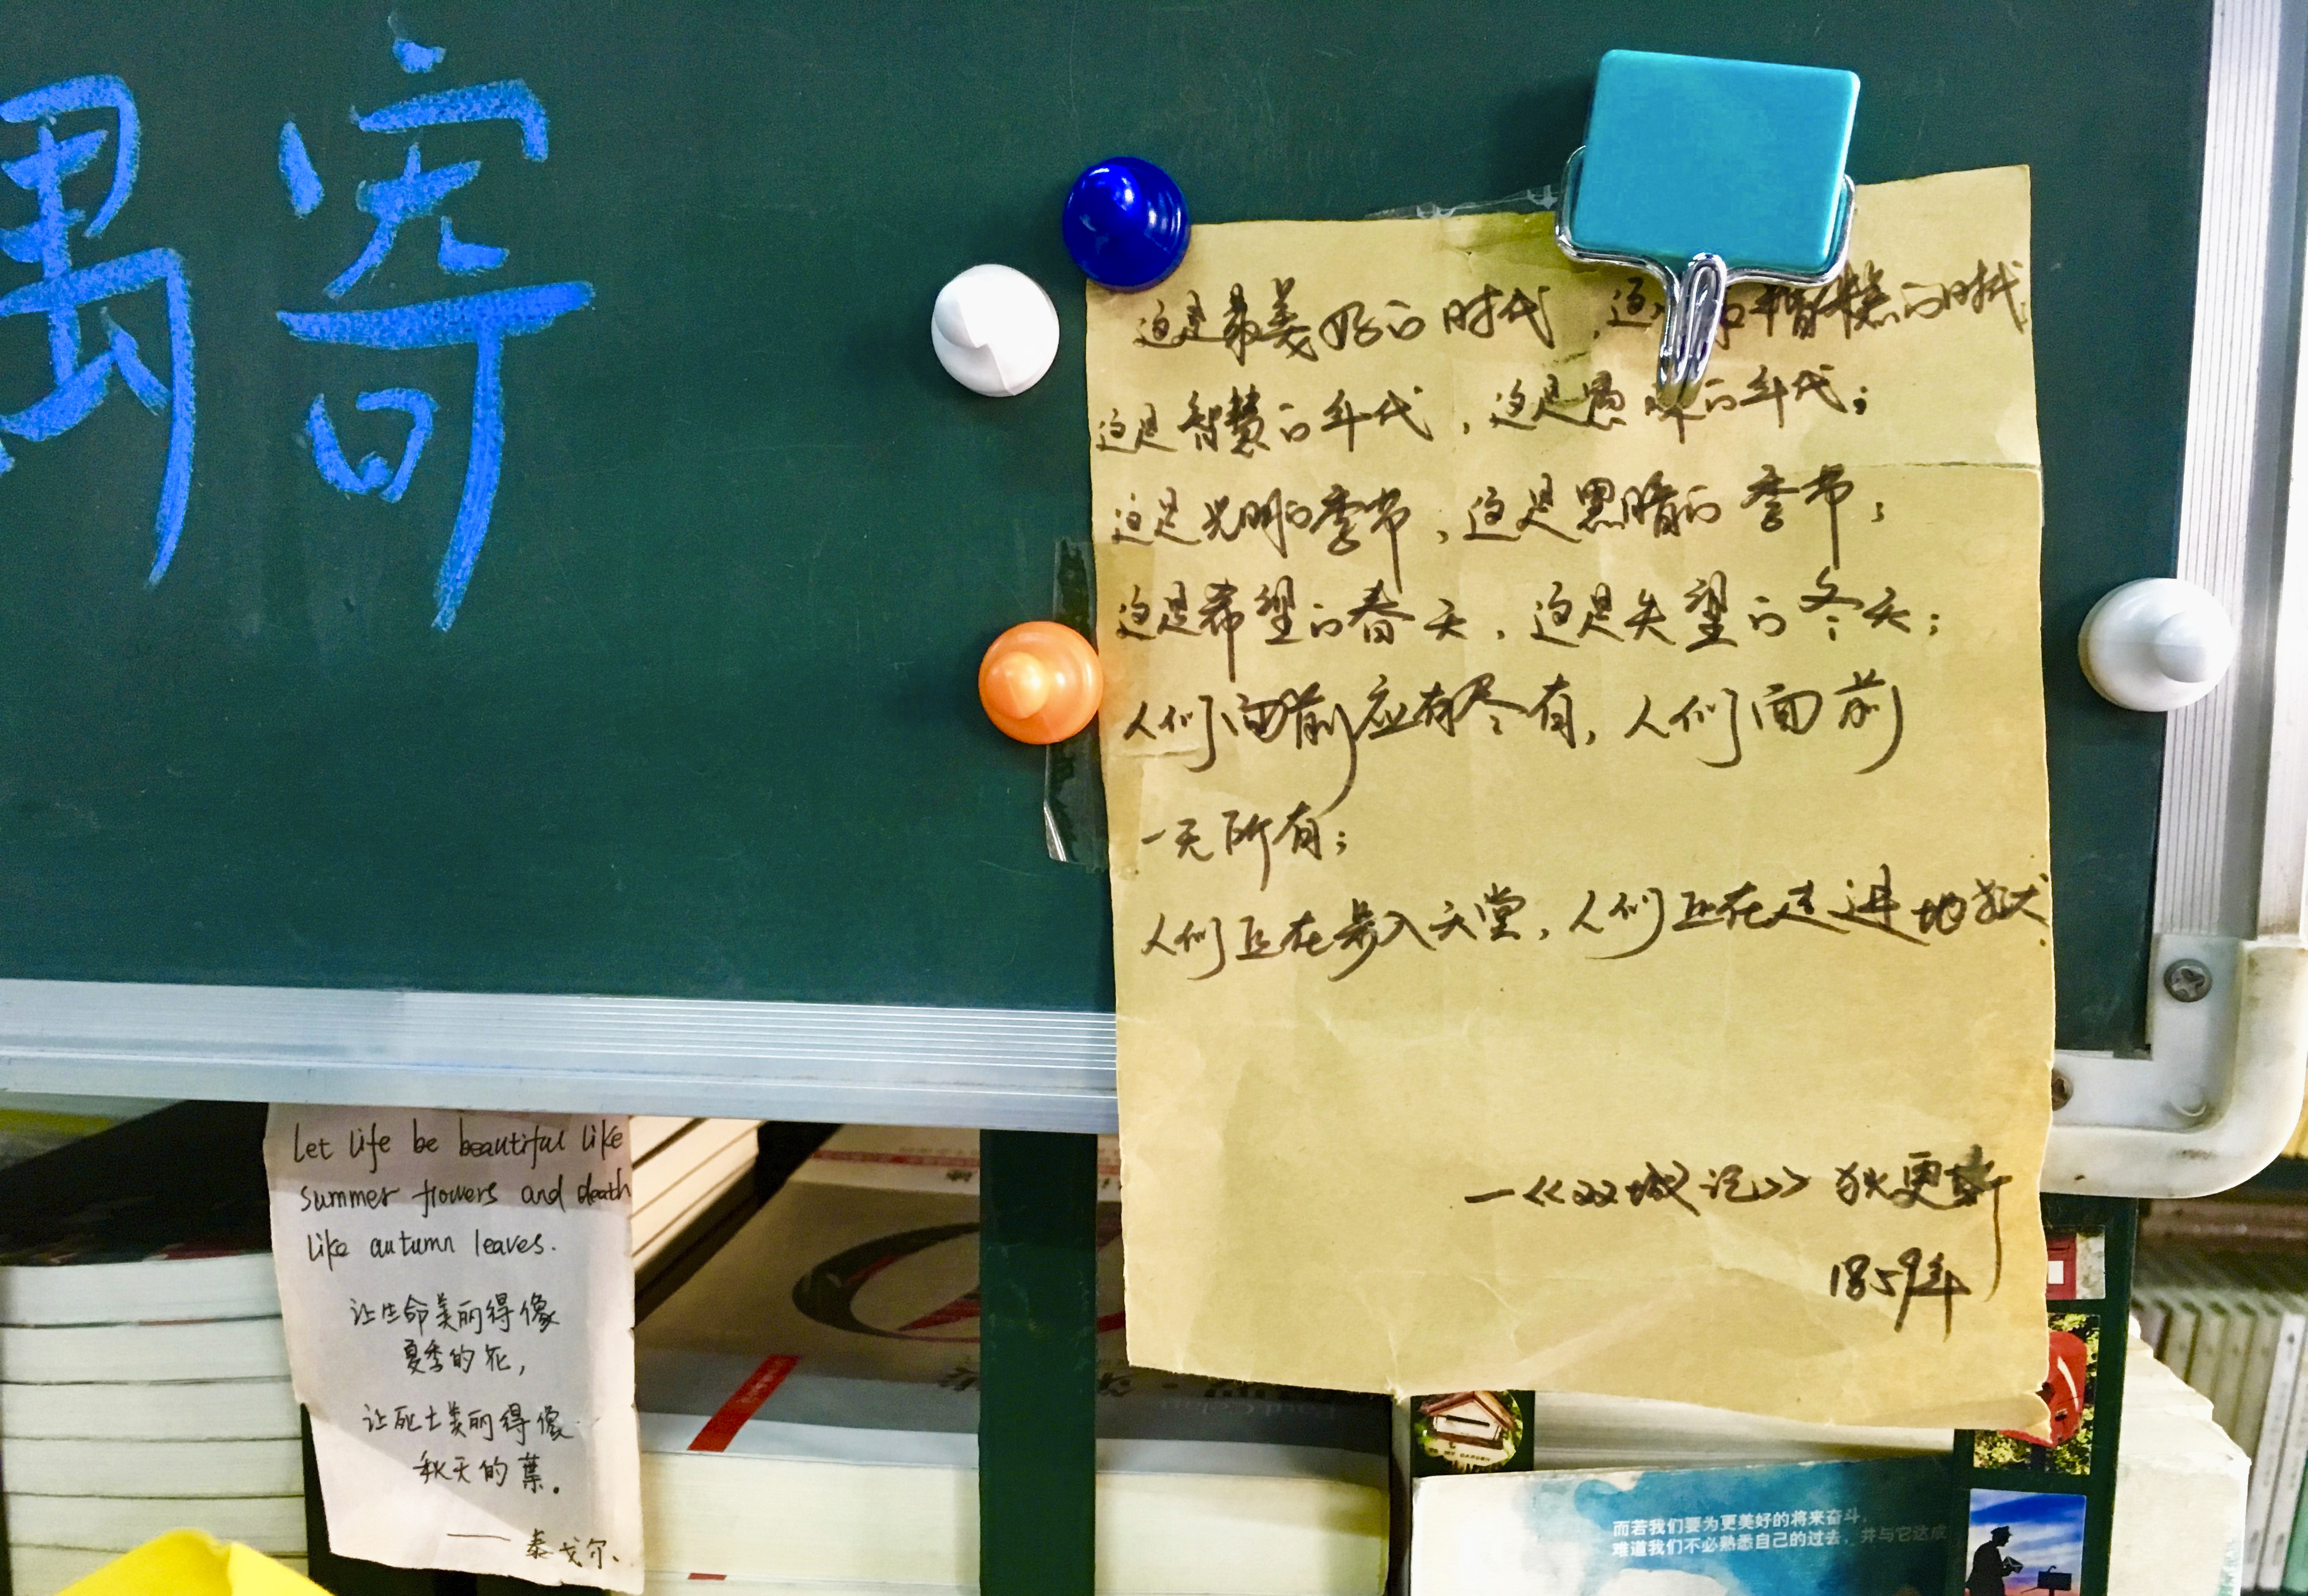 寄
这是最美好的时代,这的时代,
这是智慧的年代,这是愚的年代;
这是光明的季节,这是黑暗的季节;
这是希望的春天,这是失望的冬天;
人们面前应有尽有,人们面前
一无所有;
人们正在步入天堂,人们正在走进地狱.
—《双城记》狄更斯
1859年
Let life be beautiful like
summer flowers and death
like autumn leaves.
让生命美丽得像
夏季的花,
让死亡美丽得像
秋天的葉。
——泰戈尔、
而若我们要为更美好的将来奋斗,
难道我们不必熟悉自己的过去,并与它达成